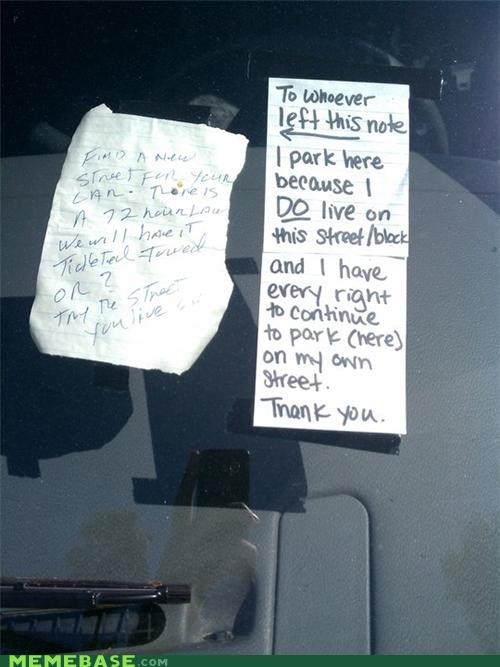 FIND A NEW
STREET FOR YOUR
CAR. THERE IS
A 72 hour Law
We will have it
Ticketed - Towed
OR ?
try the STREET
you live on
To whoever
left this note
I park here
because I
DO live on
this street/block
and I have
every right
to continue
to park (here)
on my own
street.
Thank you.
MEMEBASE.COM